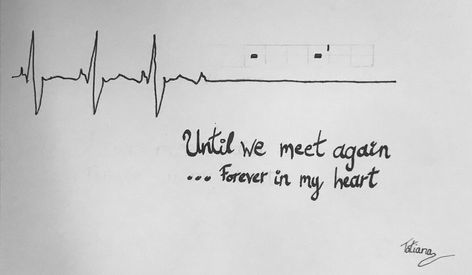 Until we meet again
... Forever in my heart
Tatiana